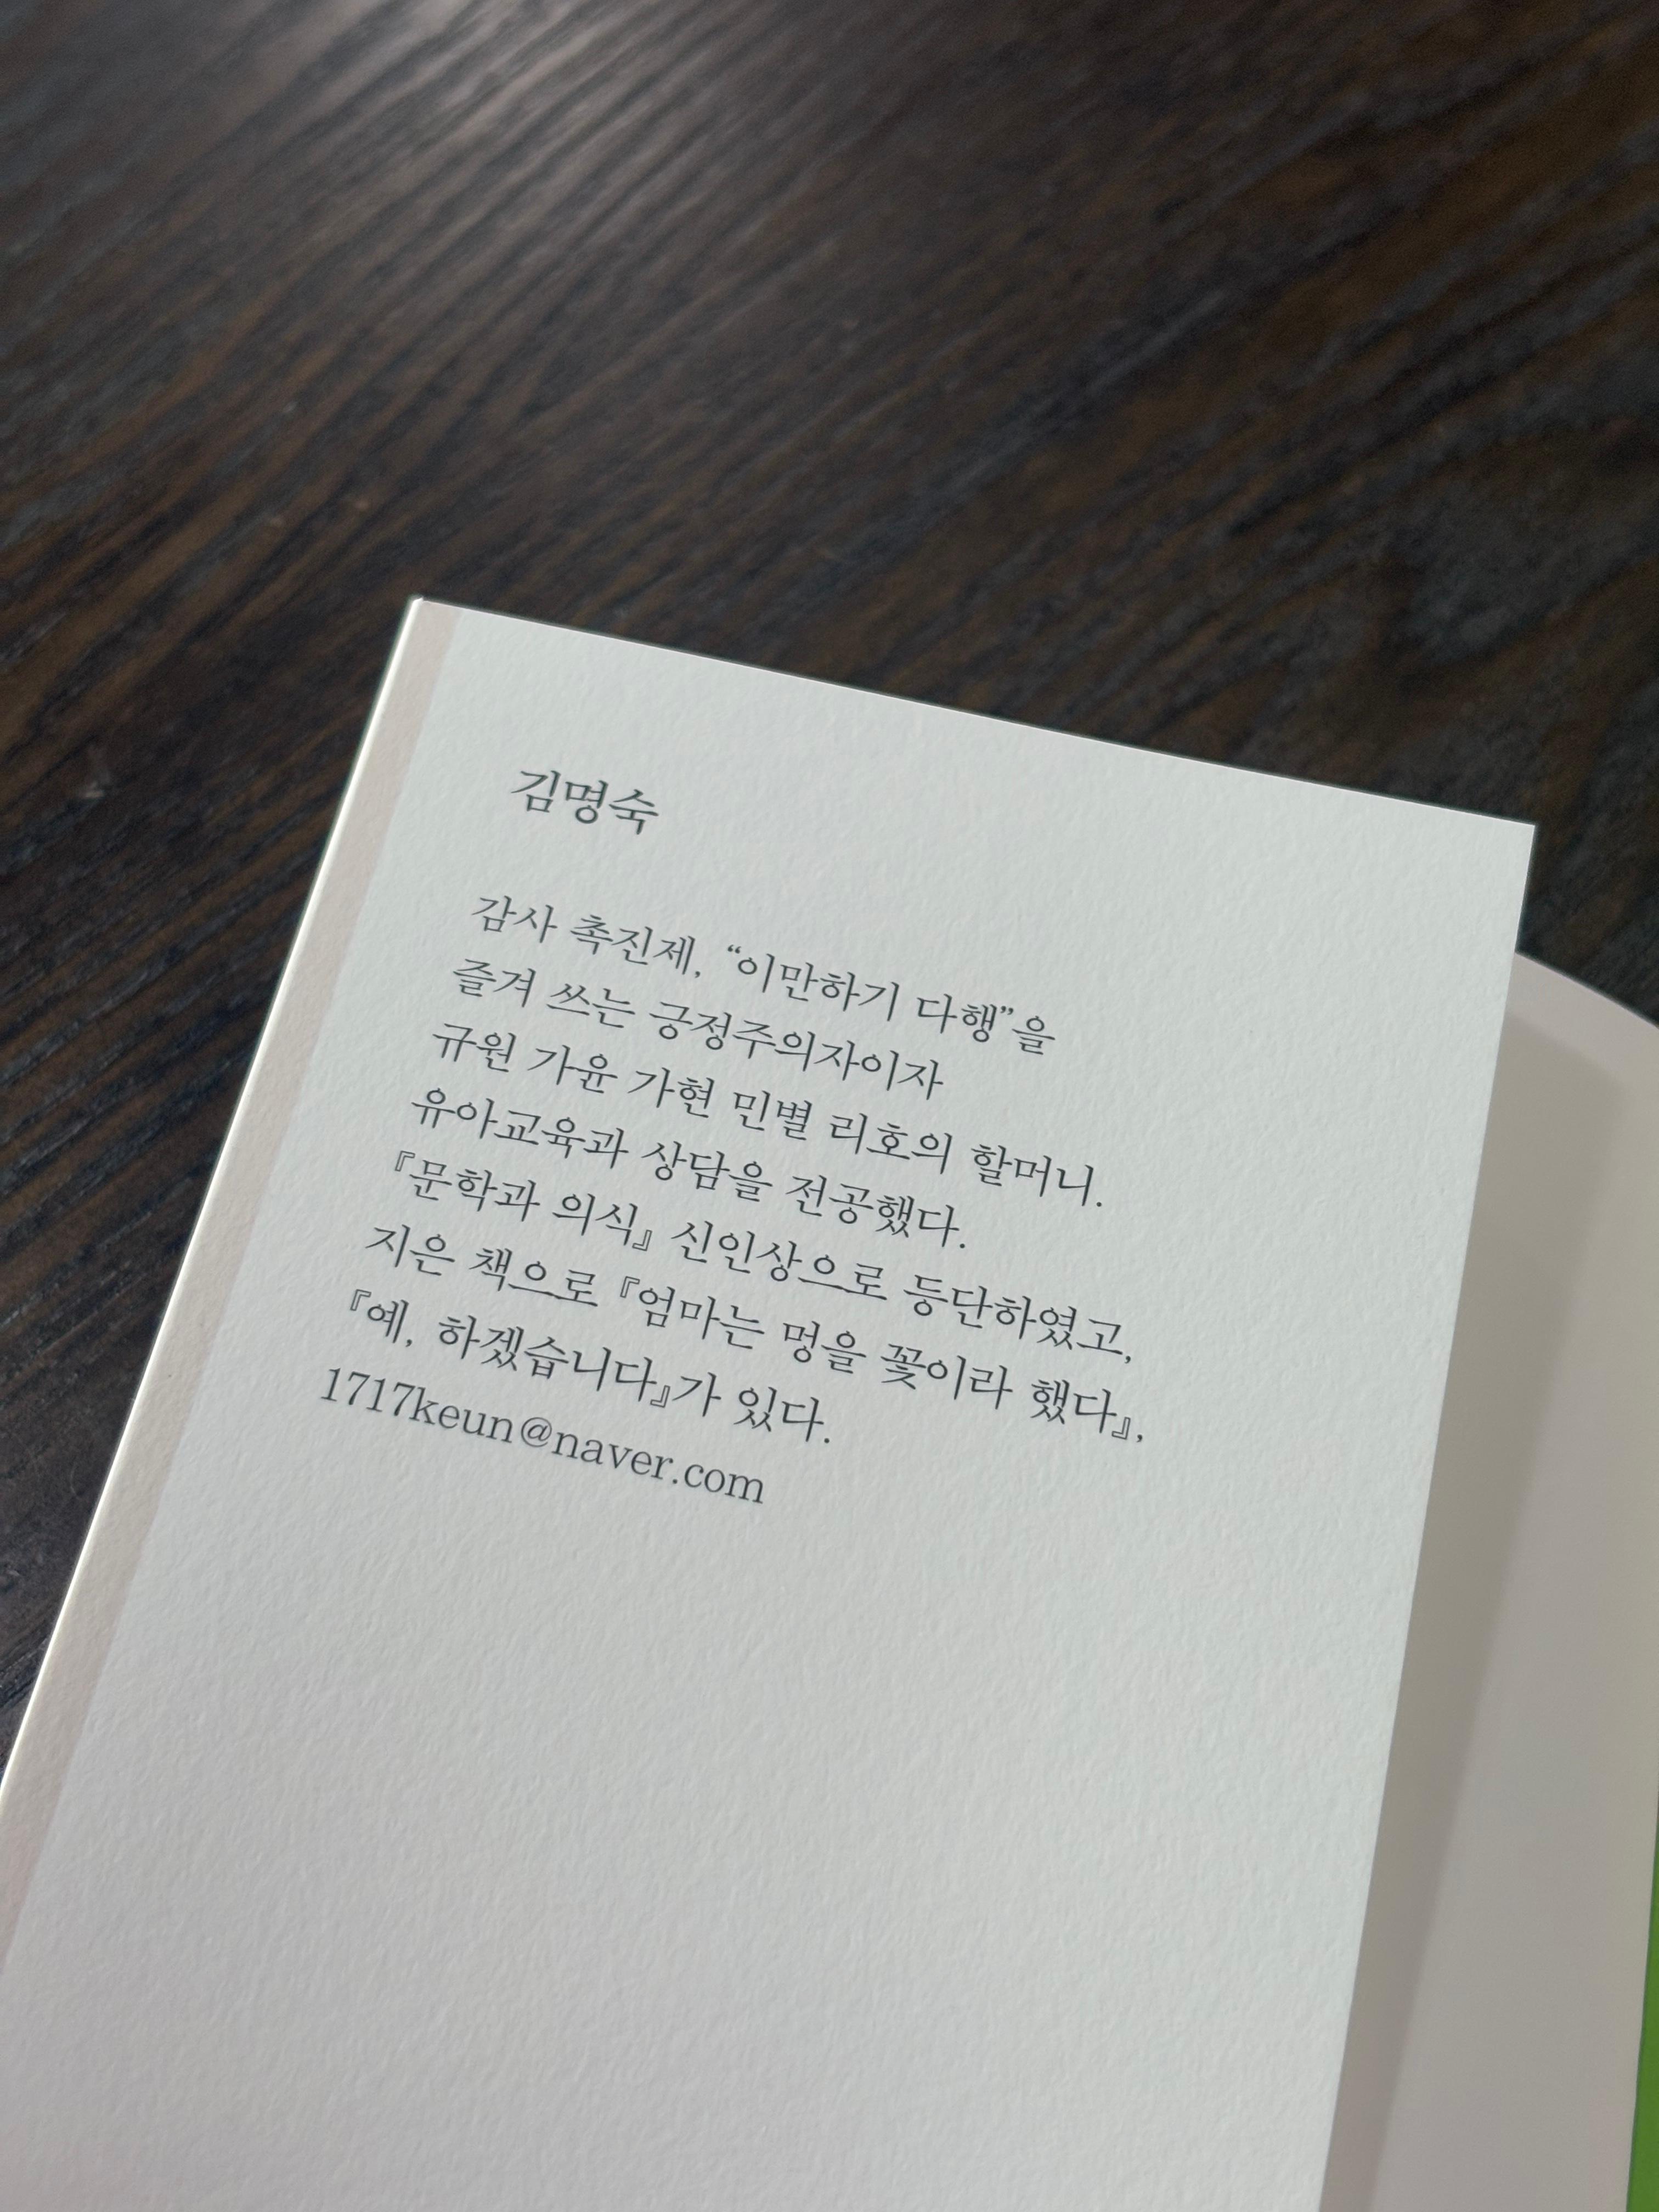 김명숙
감사 촉진제, “이만하기 다행”을
즐겨 쓰는 긍정주의자이자
규원 가윤 가현 민별 리호의 할머니.
유아교육과 상담을 전공했다.
『문학과 의식』 신인상으로 등단하였고,
지은 책으로 『엄마는 멍을 꽃이라 했다』,
『예, 하겠습니다』가 있다.
1717keun@naver.com